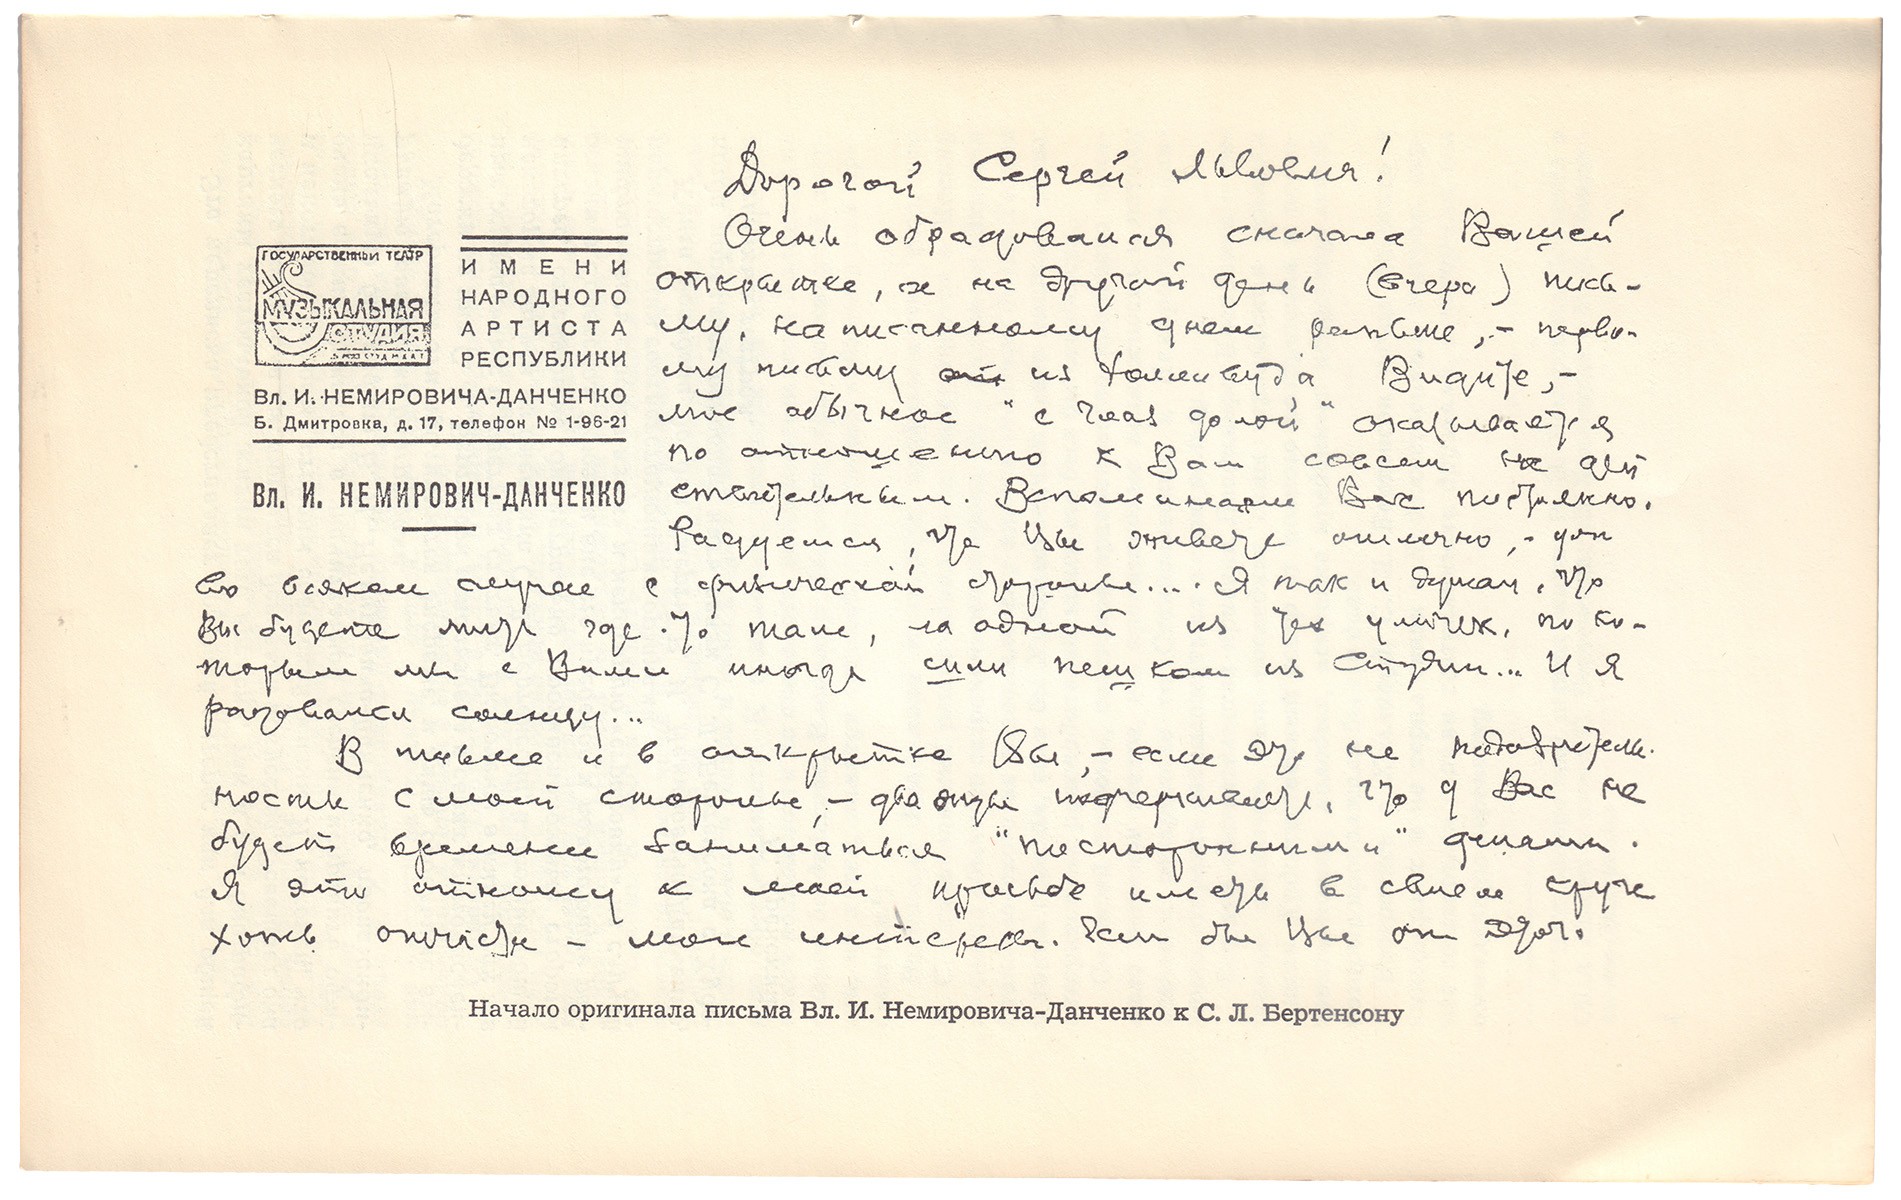 ГОСУДАРСТВЕННЫЙ ТЕАТР
МУЗЫКАЛЬНАЯ
СТУДИЯ
ИМЕНИ
НАРОДНОГО
АРТИСТА
РЕСПУБЛИКИ
Вл. И. НЕМИРОВИЧА-ДАНЧЕНКО
Б. Дмитровка, д. 17, телефон № 1-96-21
Вл. И. НЕМИРОВИЧ-ДАНЧЕНКО
Дорогой Сергей Львович!
Очень обрадовался сначала Вашей
открытке, и на другой день (вчера) пись-
му, написанному днем раньше, – перво-
му письму из Холливуда Видите, –
мое обычное "с глаз долой" оказывается
по отношению к Вам совсем не дей
ствительным. Вспоминаем Вас постоянно.
Радуемся, что Вы живете отлично, –
во всяком случае с физической стороны.... Я так и думал, что
Вы будете жить где-то там, на одной из тех улочек, по ко-
торым мы с Вами иногда шли пешком из Студии... И я
радовался солнцу...
В письме и в открытке Вы, – если это не подозритель-
ность с моей стороны, – дважды подчеркиваете, что у Вас не
будет времени заниматься "посторонними" делами.
Я это отношу к моей просьбе иметь в своем круге
хоть отчасти – мои интересы. Если бы Вы от этого
Начало оригинала письма Вл. И. Немировича-Данченко к С. Л. Бертенсону